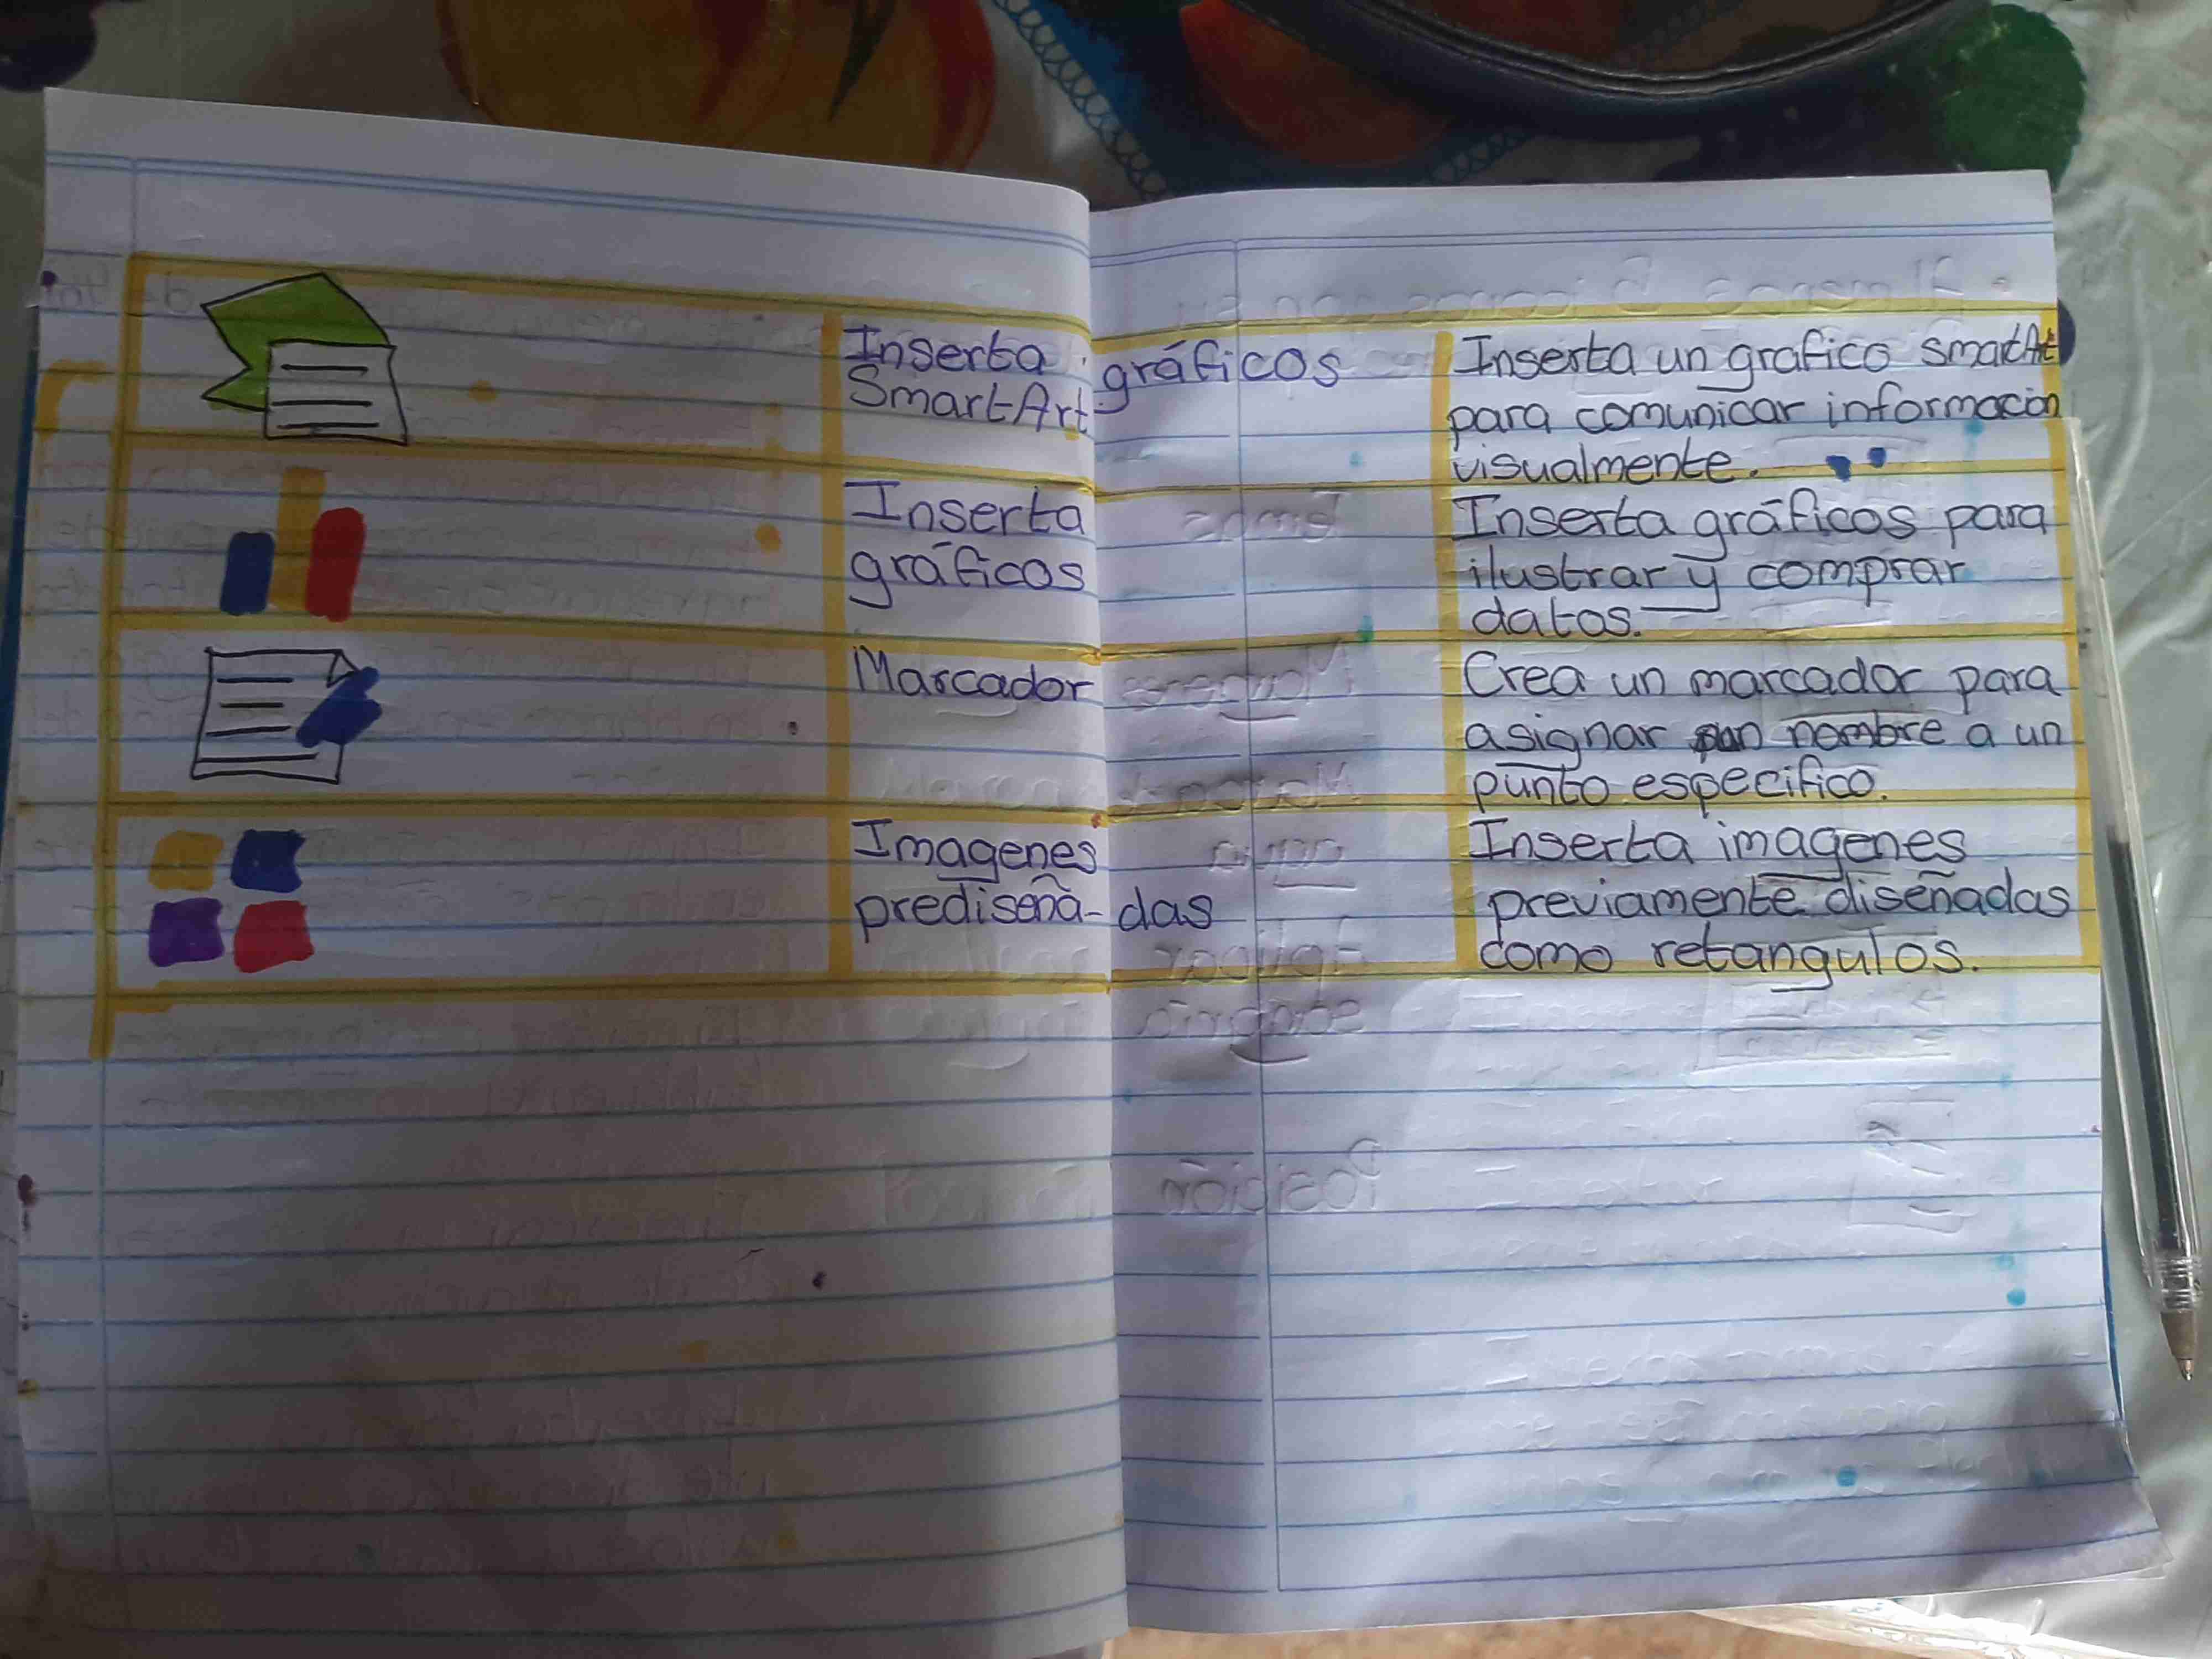 Inserta gráficos
SmartArt
Inserta un grafico smartArt
para comunicar información
visualmente.
Inserta
gráficos
Inserta gráficos para
ilustrar y comprar
datos.
Marcador
Crea un marcador para
asignar un nombre a un
punto especifico.
Imagenes
prediseña-das
Inserta imagenes
previamente diseñadas
como retangulos.